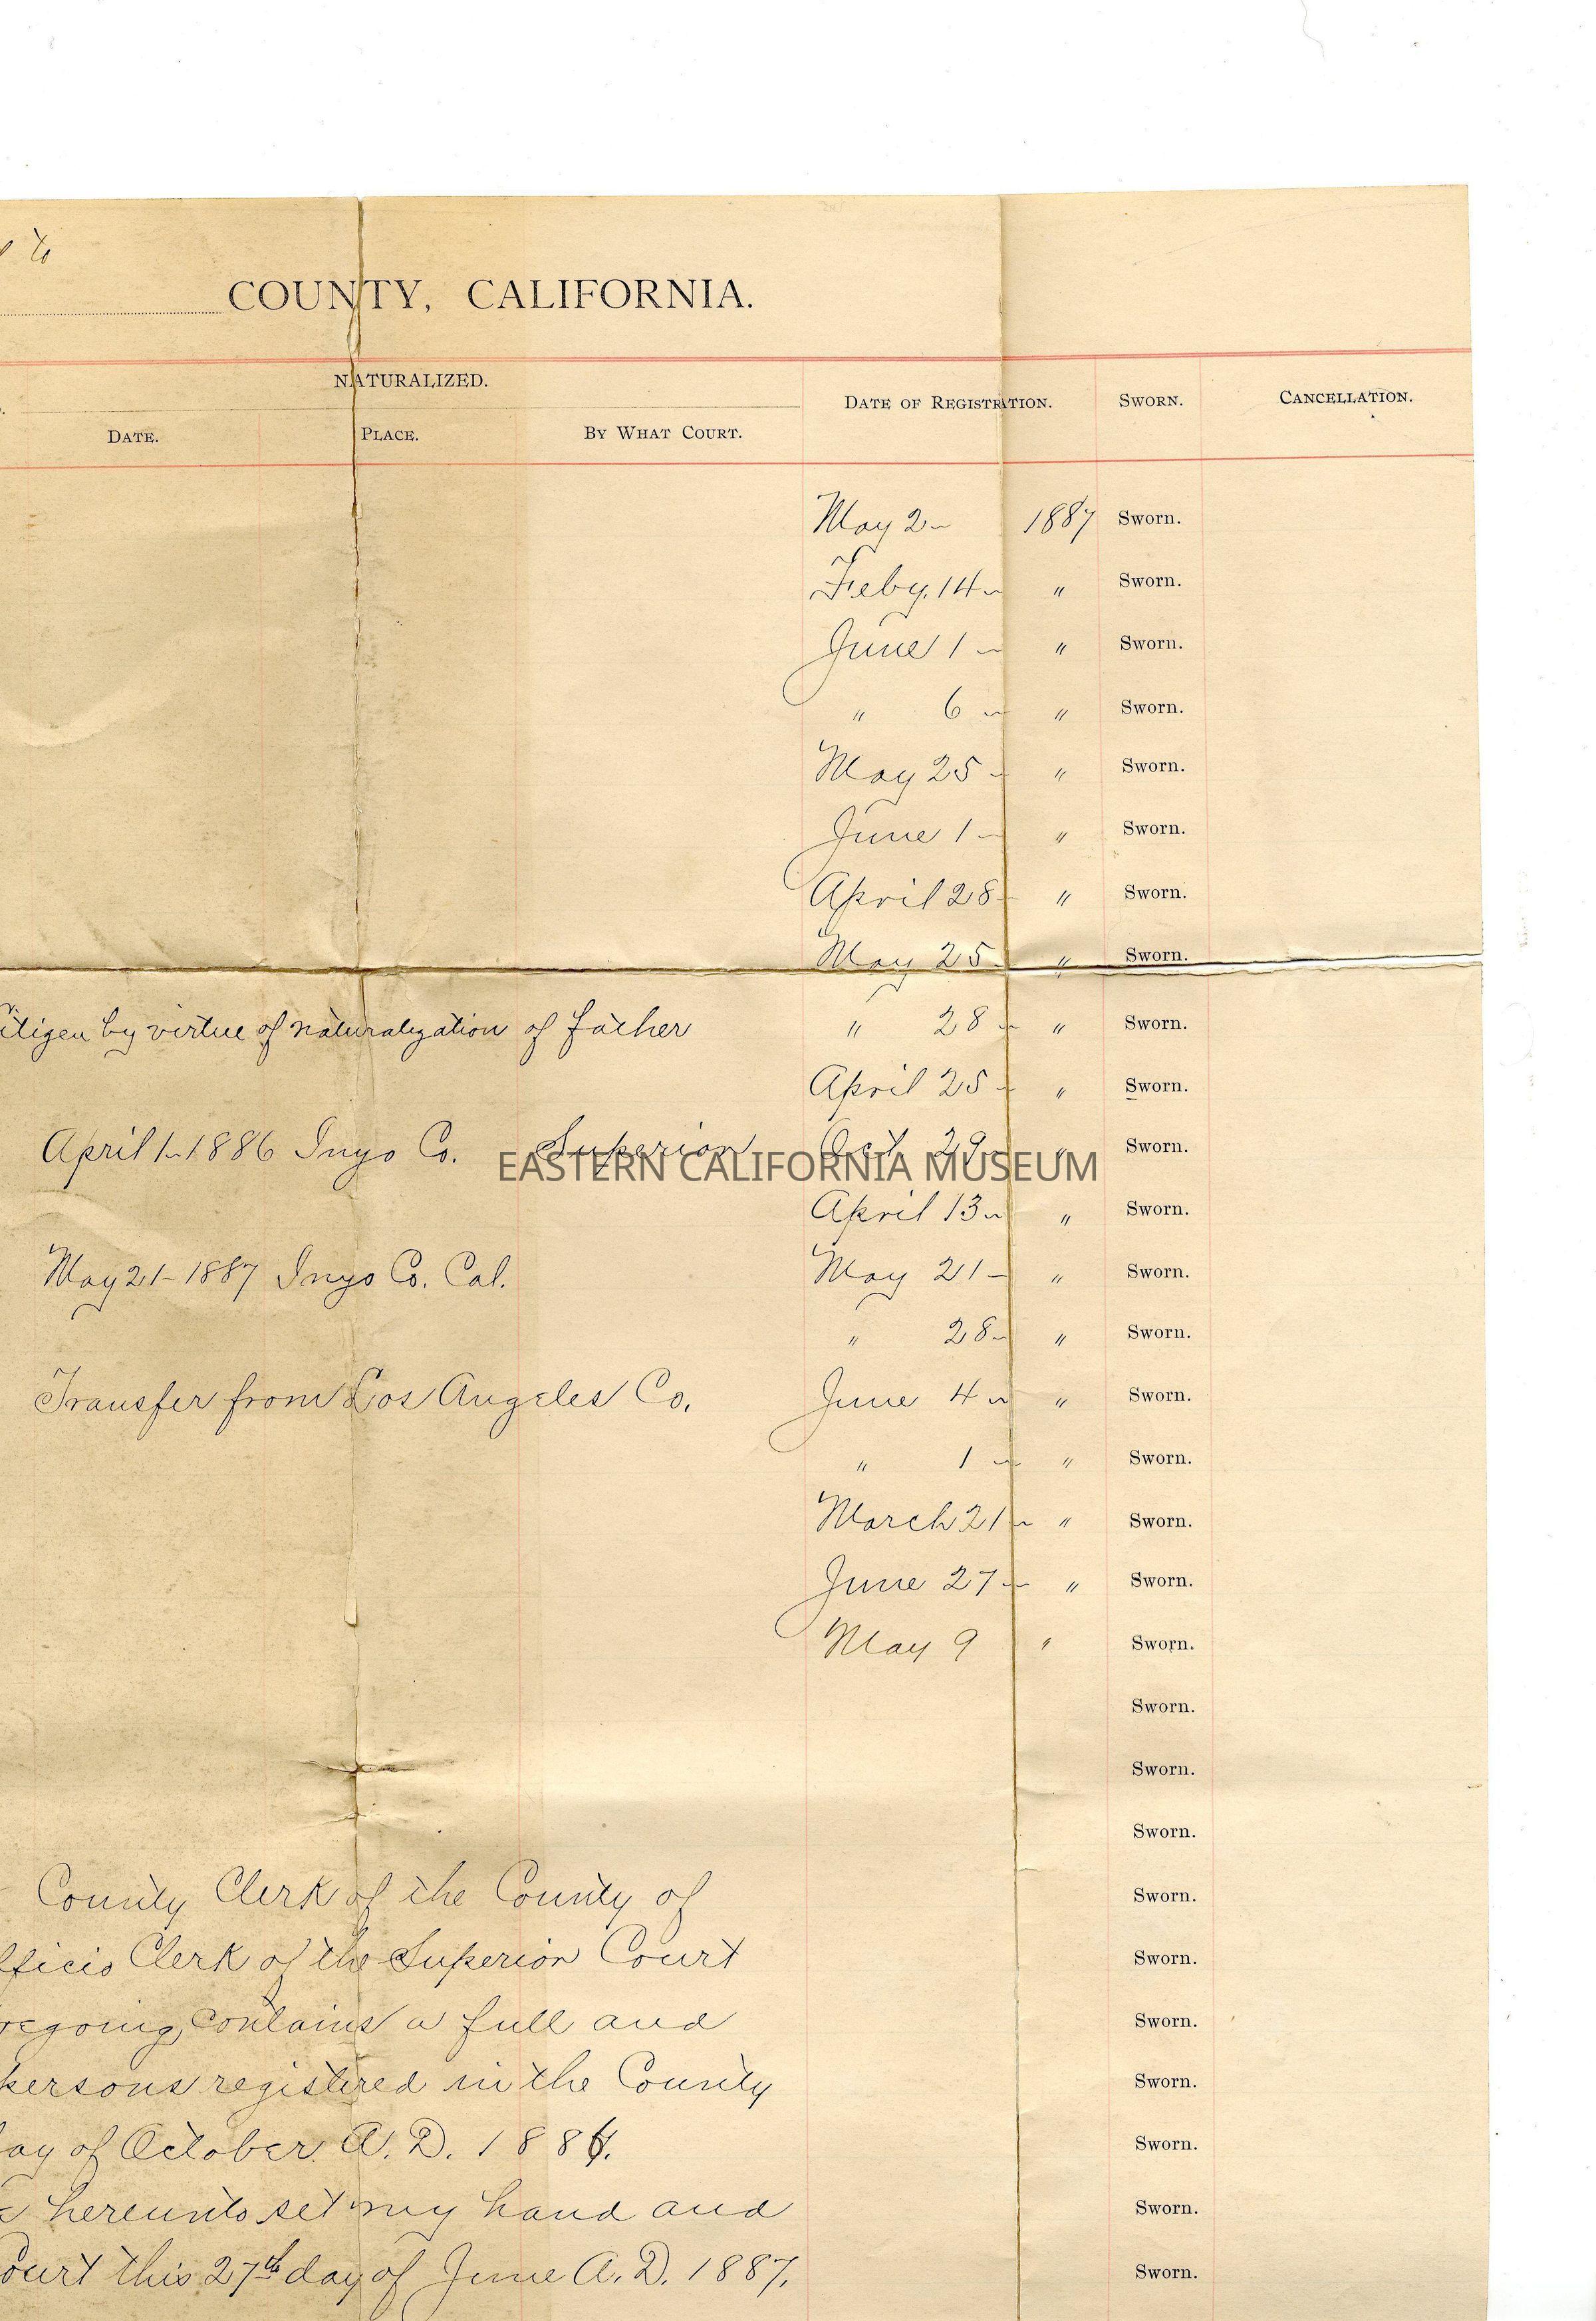 to
COUNTY, CALIFORNIA.
NATURALIZED.
DATE. PLACE. BY WHAT COURT. DATE OF REGISTRATION. SWORN. CANCELLATION.
May 2 – 1887 Sworn.
Feby. 14 – " Sworn.
June 1 – " Sworn.
" 6 – " Sworn.
May 25 – " Sworn.
June 1 – " Sworn.
April 28 – " Sworn.
May 25 – " Sworn.
itizen by virtue of naturalization of father " 28 – " Sworn.
April 25 – " Sworn.
April 1 – 1886 Inyo Co. Superior Oct. 29 – " Sworn.
EASTERN CALIFORNIA MUSEUM
April 13 – " Sworn.
May 21 – 1887 Inyo Co. Cal. May 21 – " Sworn.
" 28 – " Sworn.
Transfer from Los Angeles Co. June 4 – " Sworn.
" 1 – " Sworn.
March 21 – " Sworn.
June 27 – " Sworn.
May 9 " Sworn.
Sworn.
Sworn.
Sworn.
County Clerk of the County of Sworn.
fficio Clerk of the Superior Court Sworn.
regoing, contains a full and Sworn.
persons registered in the County Sworn.
ay of October A. D. 1886. Sworn.
hereunto set my hand and Sworn.
Court this 27th day of June A. D. 1887. Sworn.